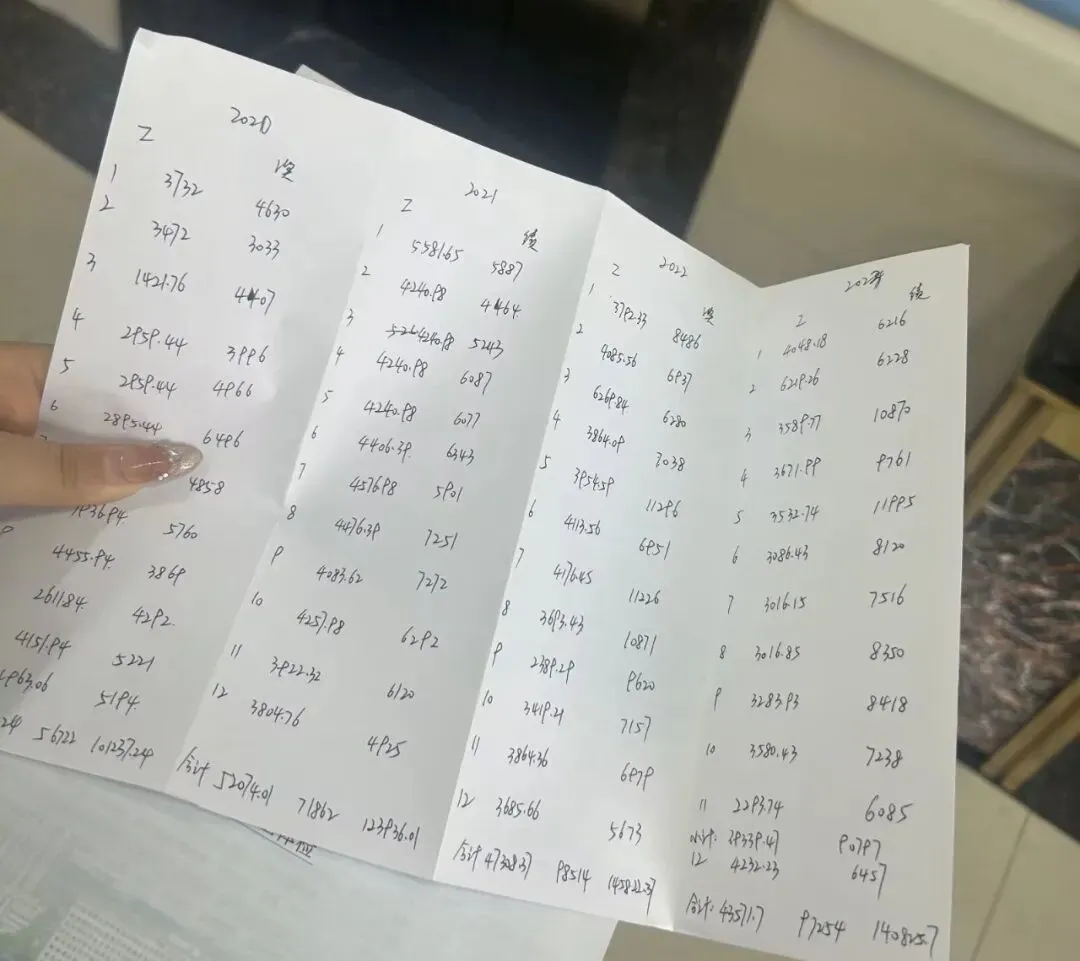 2020
工 奖
1 3732 4630
2 3472 3033
3 1421.76 4407
4 2959.44 3996
5 2959.44 4966
6 2895.44 6496
4858
1936.94 5760
9 4455.94 3869
2611.84 4292
4151.94 5221
963.06 5194
24 56722 101237.24
2021
工 绩
1 5581.65 5887
2 4240.98 4464
3 4240.98 5243
4 4240.98 6087
5 4240.98 6077
6 4406.39 6343
7 4576.98 5901
8 4476.39 7251
9 4083.62 7272
10 4257.98 6292
11 3922.32 6120
12 3804.76 4925
合计 52074.01 71862 123936.01
2022
工 奖
1 3792.33 8486
2 4085.56 6937
3 6269.84 6280
4 3864.09 7038
5 3954.59 11296
6 4113.56 6951
7 4176.45 11226
8 3693.43 10871
9 2389.29 9620
10 3419.21 7157
11 3864.36 6979
12 3685.66 5673
合计 47308.37 98514 145822.37
2023年
工 绩
1 4048.18 6216
2 6219.26 6228
3 3589.77 10870
4 3671.99 9761
5 3532.74 11995
6 3086.43 8120
7 3016.15 7516
8 3016.85 8350
9 3283.93 8418
10 3580.43 7238
11 2293.74 6085
小计: 39339.47 90797
12 4232.23 6457
合计: 43571.7 97254 140825.7